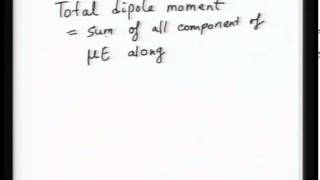 Total dipole moment
= sum of all component of
μE along